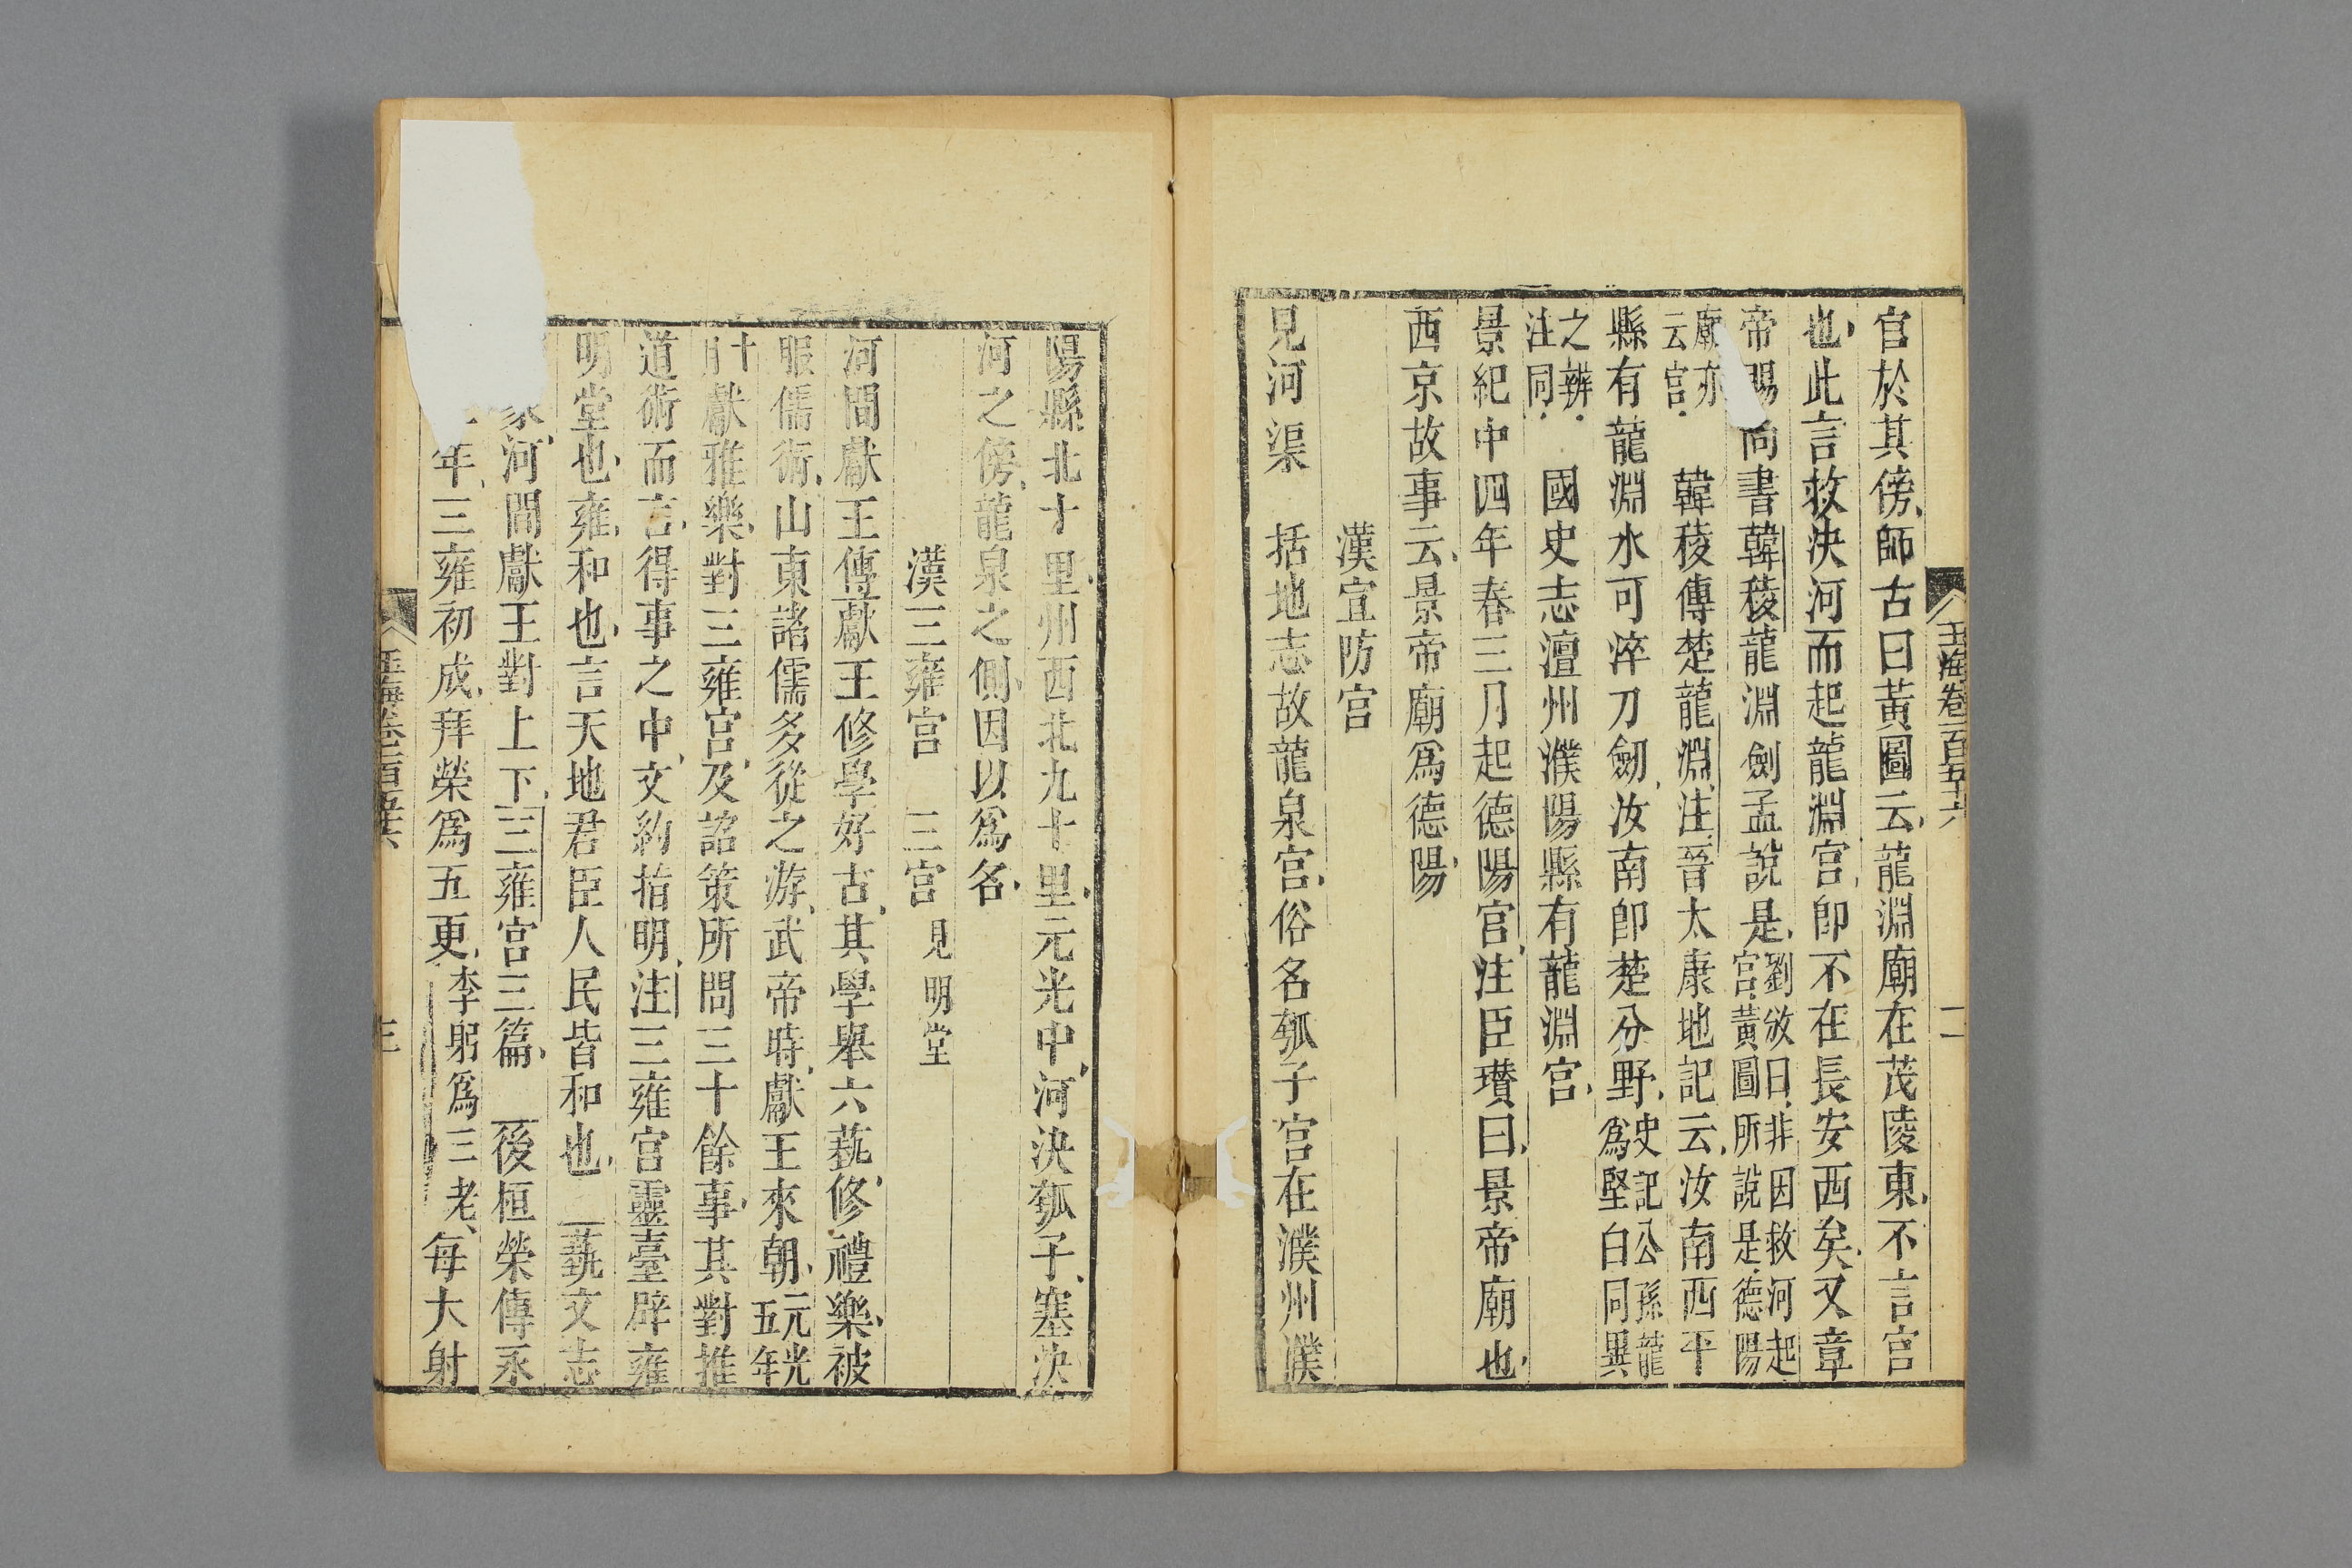 玉海卷一百五十六 二
官於其傍師古曰黃圖云龍淵廟在茂陵東不言宮
也此言救決河而起龍淵宮卽不在長安西矣又章
帝賜尚書韓稜龍淵劍孟說是劉攽曰非因救河起宮黃圖所說是德陽
廟亦云官 韓稜傳楚龍淵注晉太康地記云汝南西平
縣有龍淵水可淬刀劒汝南卽楚分野史記公孫龍爲堅白同異
之辨注同 國史志澶州濮陽縣有龍淵宮
景紀中四年春三月起德陽宮注臣瓚曰景帝廟也
西京故事云景帝廟爲德陽
漢宣防宮
見河渠 括地志故龍泉宮俗名瓠子宮在濮州濮
陽縣北十里州西北九十里元光中河決瓠子塞決
河之傍龍泉之側因以爲名
漢三雍宮 三宮 見明堂
河間獻王傳獻王修學好古其學舉六蓺修禮樂被
服儒術山東諸儒多從之游武帝時獻王來朝元光五年
十月獻雅樂對三雍宮及詔策所問三十餘事其對推
道術而言得事之中文約指明注三雍宮靈臺辟雍
明堂也雍和也言天地君臣人民皆和也 蓺文志
家河間獻王對上下三雍宮三篇 後桓榮傳永
年三雍初成拜榮爲五更李躬爲三老每大射
玉海卷一百五十六 三